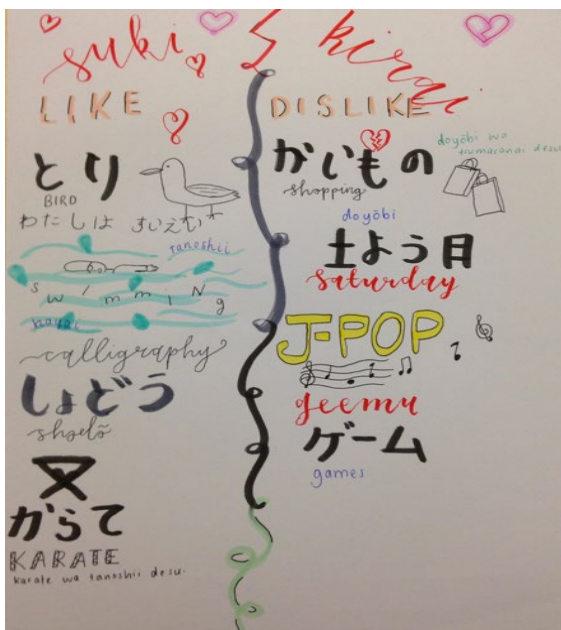 suki
LIKE
とり
BIRD
わたしは すいえい
tanoshii
swimmiNg
hayai
calligraphy
しょどう
shodō
からて
KARATE
karate wa tanoshii desu.
kirai
DISLIKE
かいもの
shopping
doyōbi wa
tsumaranai desu
doyōbi
土よう日
saturday
J-POP
geemu
ゲーム
games